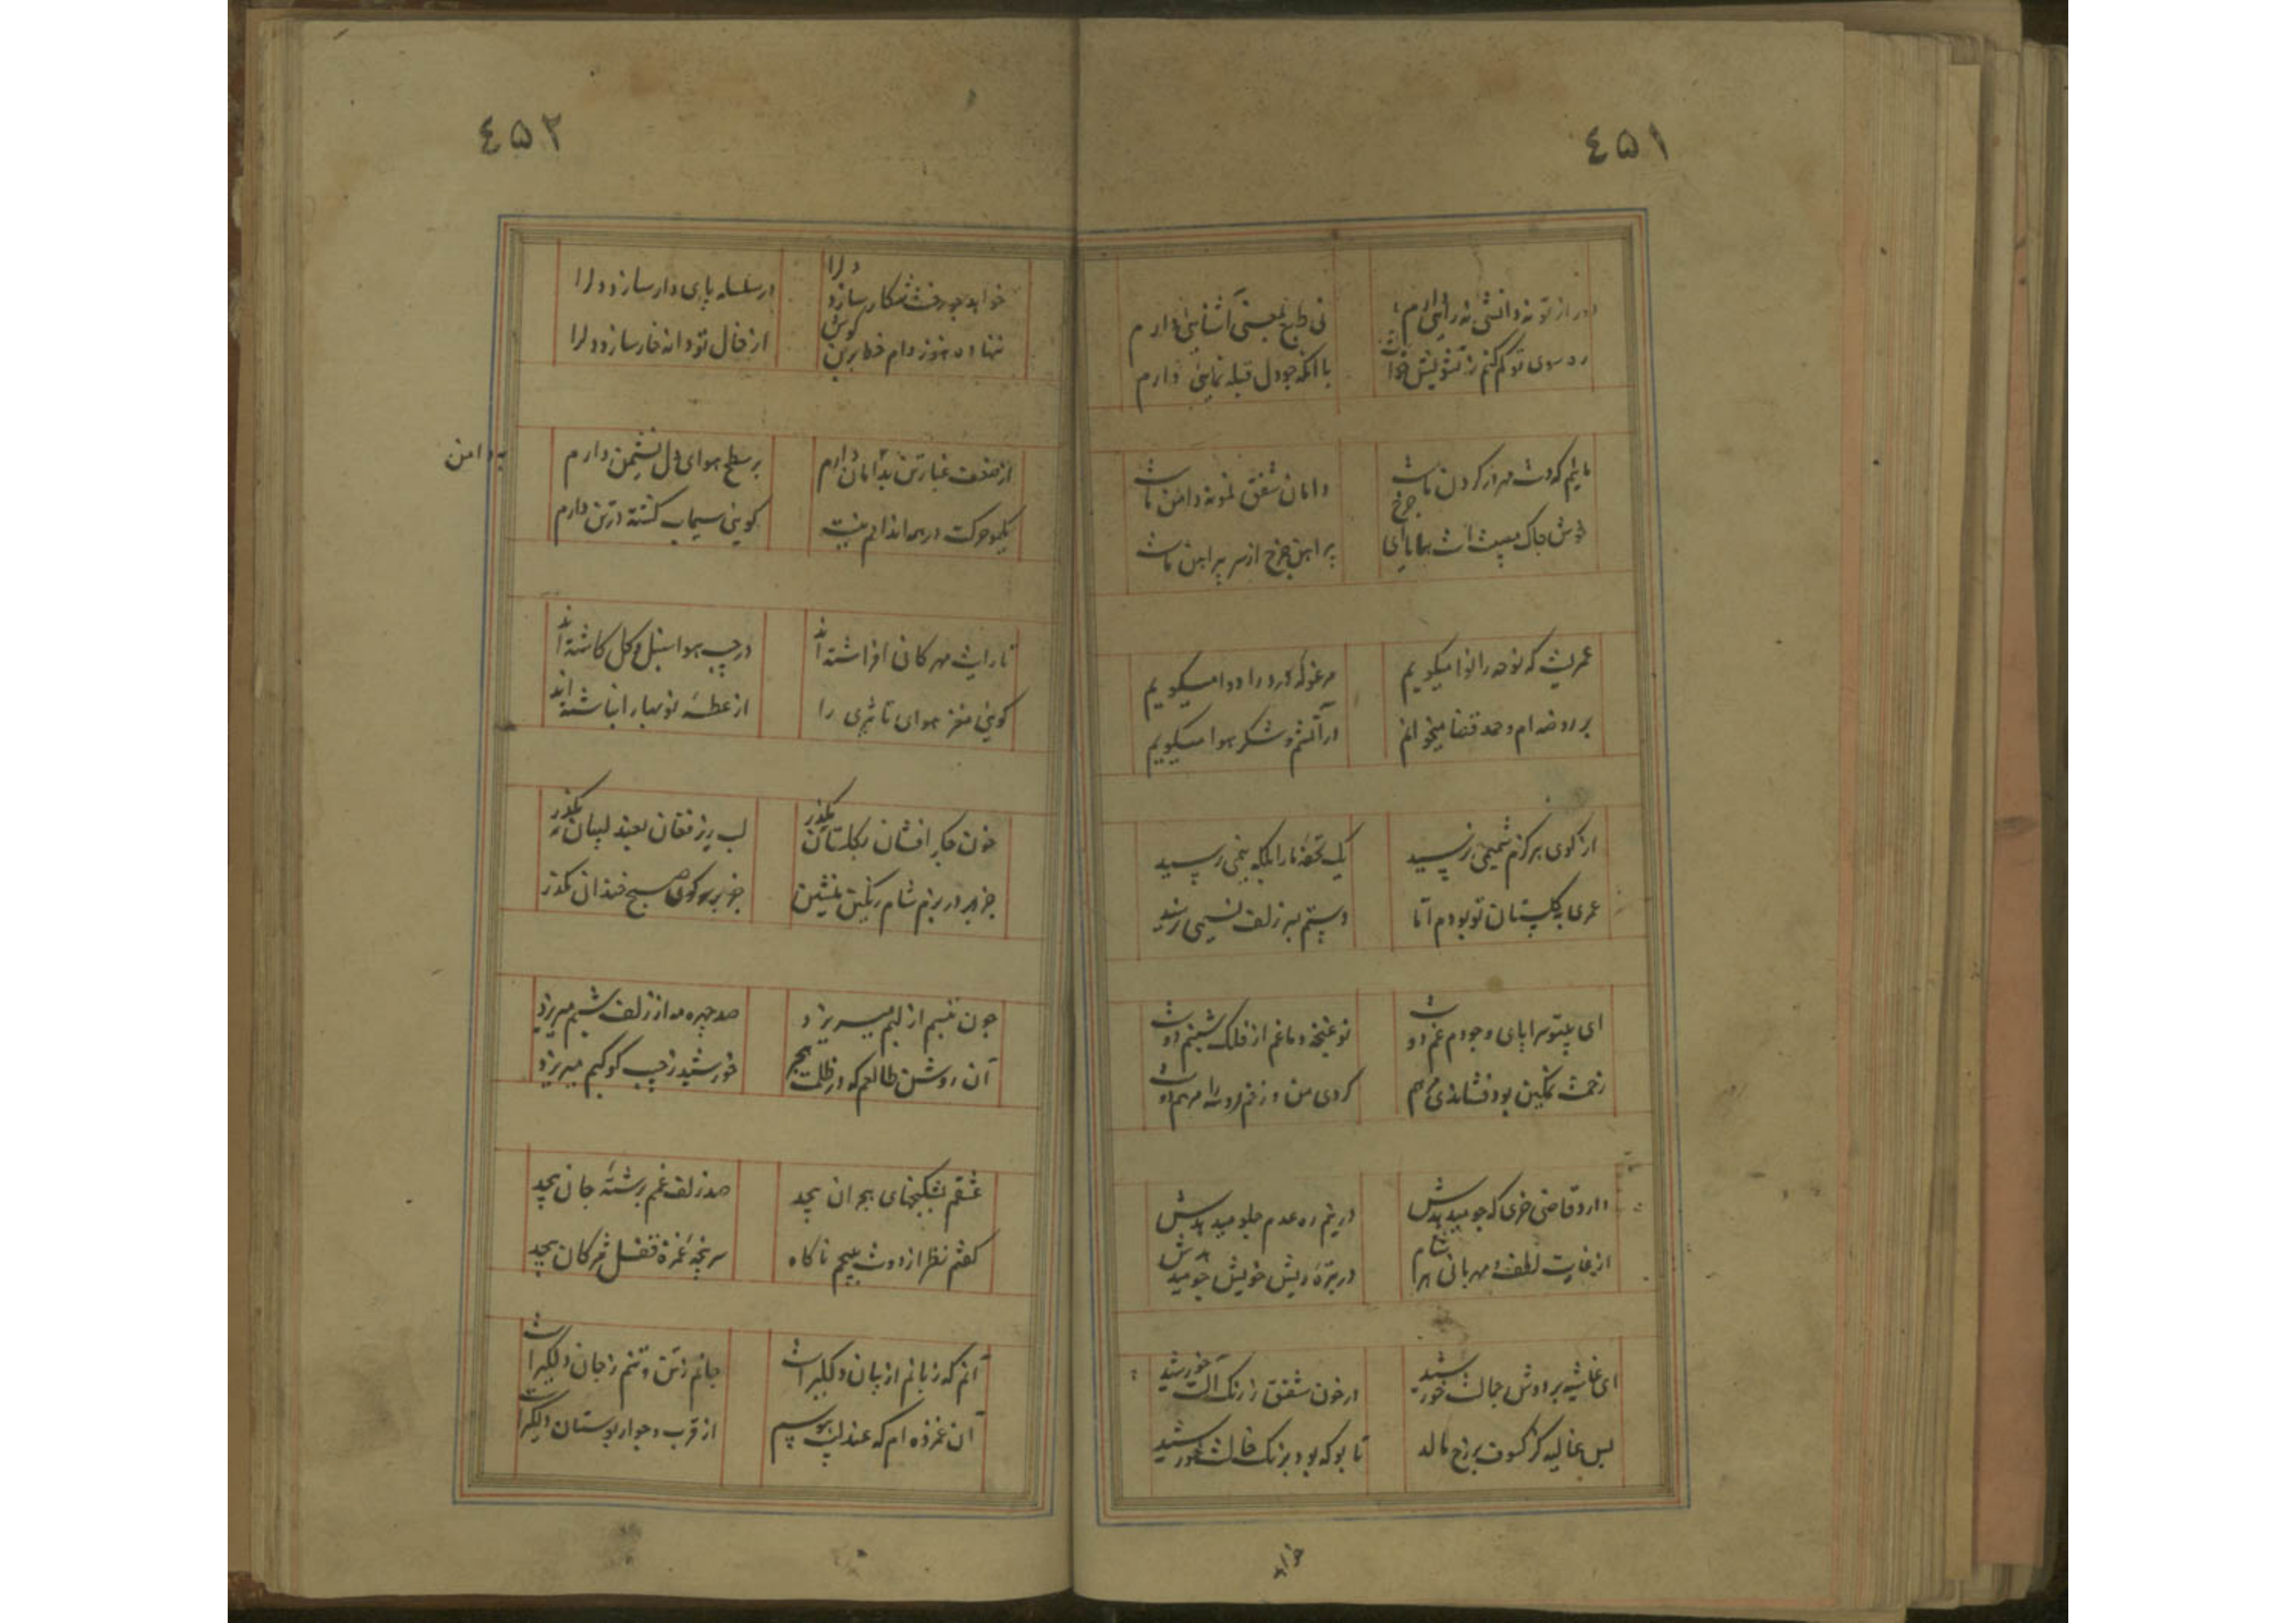 ٤۵۱
دور از تو نه دانشی نه رائی دارم
نی طبع بمعنی آشنائی دارم
ره سوی تو گم کنم ز تشویش
با آنکه چو دل قبله نمائی دارم
مائیم که دست مهر از گردن ماست
دامان شفق نمونه دامن ماست
پیراهن چرخ از سر پیراهن ماست
عمریست که نوحه را نوا میگویم
مرغوله درد را دوا میگویم
بر روضه ام و حمد قضا میخوانم
در آتشم و شکر هوا میگویم
از کوی تو هرگزم شمیمی نرسید
یک تحفه مارا بکه بیمی نرسید
عمری بگلستان تو بودم اما
دستم بسر زلف نسیمی نرسید
ای بیتو سراپای وجودم غم دوست
تو غنچه دماغم از فلک شبنم دوست
زخمت نمکین بود فشاندی مرهم
کردی من و زخم هر دو را مرهم دوست
دارد قاضی خری که جو میدهدش
در نیم ره عدم جلو میدهدش
از غایت لطف و مهربانی هر شام
در تبره ریش خویش جو میدهدش
ای غاشیه بر دوش جمالت خورشید
در خون شفق ز رنگ آلت خورشید
بس غالیه کز کسوف بر رخ مالد
تا بو که بود برنگ خالت خورشید
خواهد
٤۵۲
خواهد چو رخت شکار سازد دلرا
در سلسله پای دار سازد دلرا
ننهاده هنوز دام خط بر
از خال تو دانه خار سازد دلرا
از ضعف غبار تن بدامان دارم
بر سطح هوای دل نشیمن دارم
به دامن
یکمو حرکت در همه اندامم نیست
گوئی سیماب کشته در تن دارم
تا رایت مهرگان افراشته اند
در جیب هوا سنبل و گل کاشته اند
گوئی مغز هوای را
از عطسه نوبهار انباشته اند
خون جگر افشان بگلستان بگذر
لب ریز فغان بعندلیبان بگذر
جز بر در بزم شام رنگین منشین
جز بر سر کوی صبح خندان مگذر
چون تبسم از لبم میریزد
صد چهره مه از زلف شبم میریزد
آن روشن طالعم که در ظلمت هجر
خورشید ز جیب کوکبم میریزد
عشقم بشکنجهای هجران پیچد
صد زلف غم برشته جان پیچد
گفتم نظر از دوست بپیچم ناگاه
سرپنجه غمزه قفل مژگان پیچد
آنم که زبانم از بیان دلگیر است
جانم ز تن و تنم ز جان دلگیر است
آن غمزده ام که عندلیب هوسم
از قرب و جوار بوستان دلگیر است